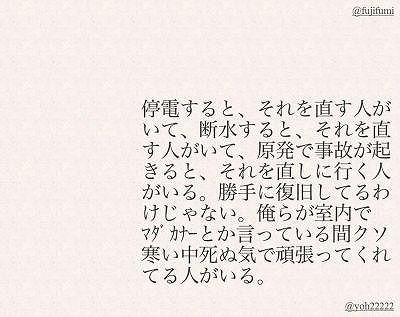 @fujifumi
停電すると、それを直す人が
いて、断水すると、それを直
す人がいて、原発で事故が起
きると、それを直しに行く人
がいる。勝手に復旧してるわ
けじゃない。俺らが室内で
ﾏﾀﾞｶﾅｰとか言っている間クソ
寒い中死ぬ気で頑張ってくれ
てる人がいる。
@yoh22222